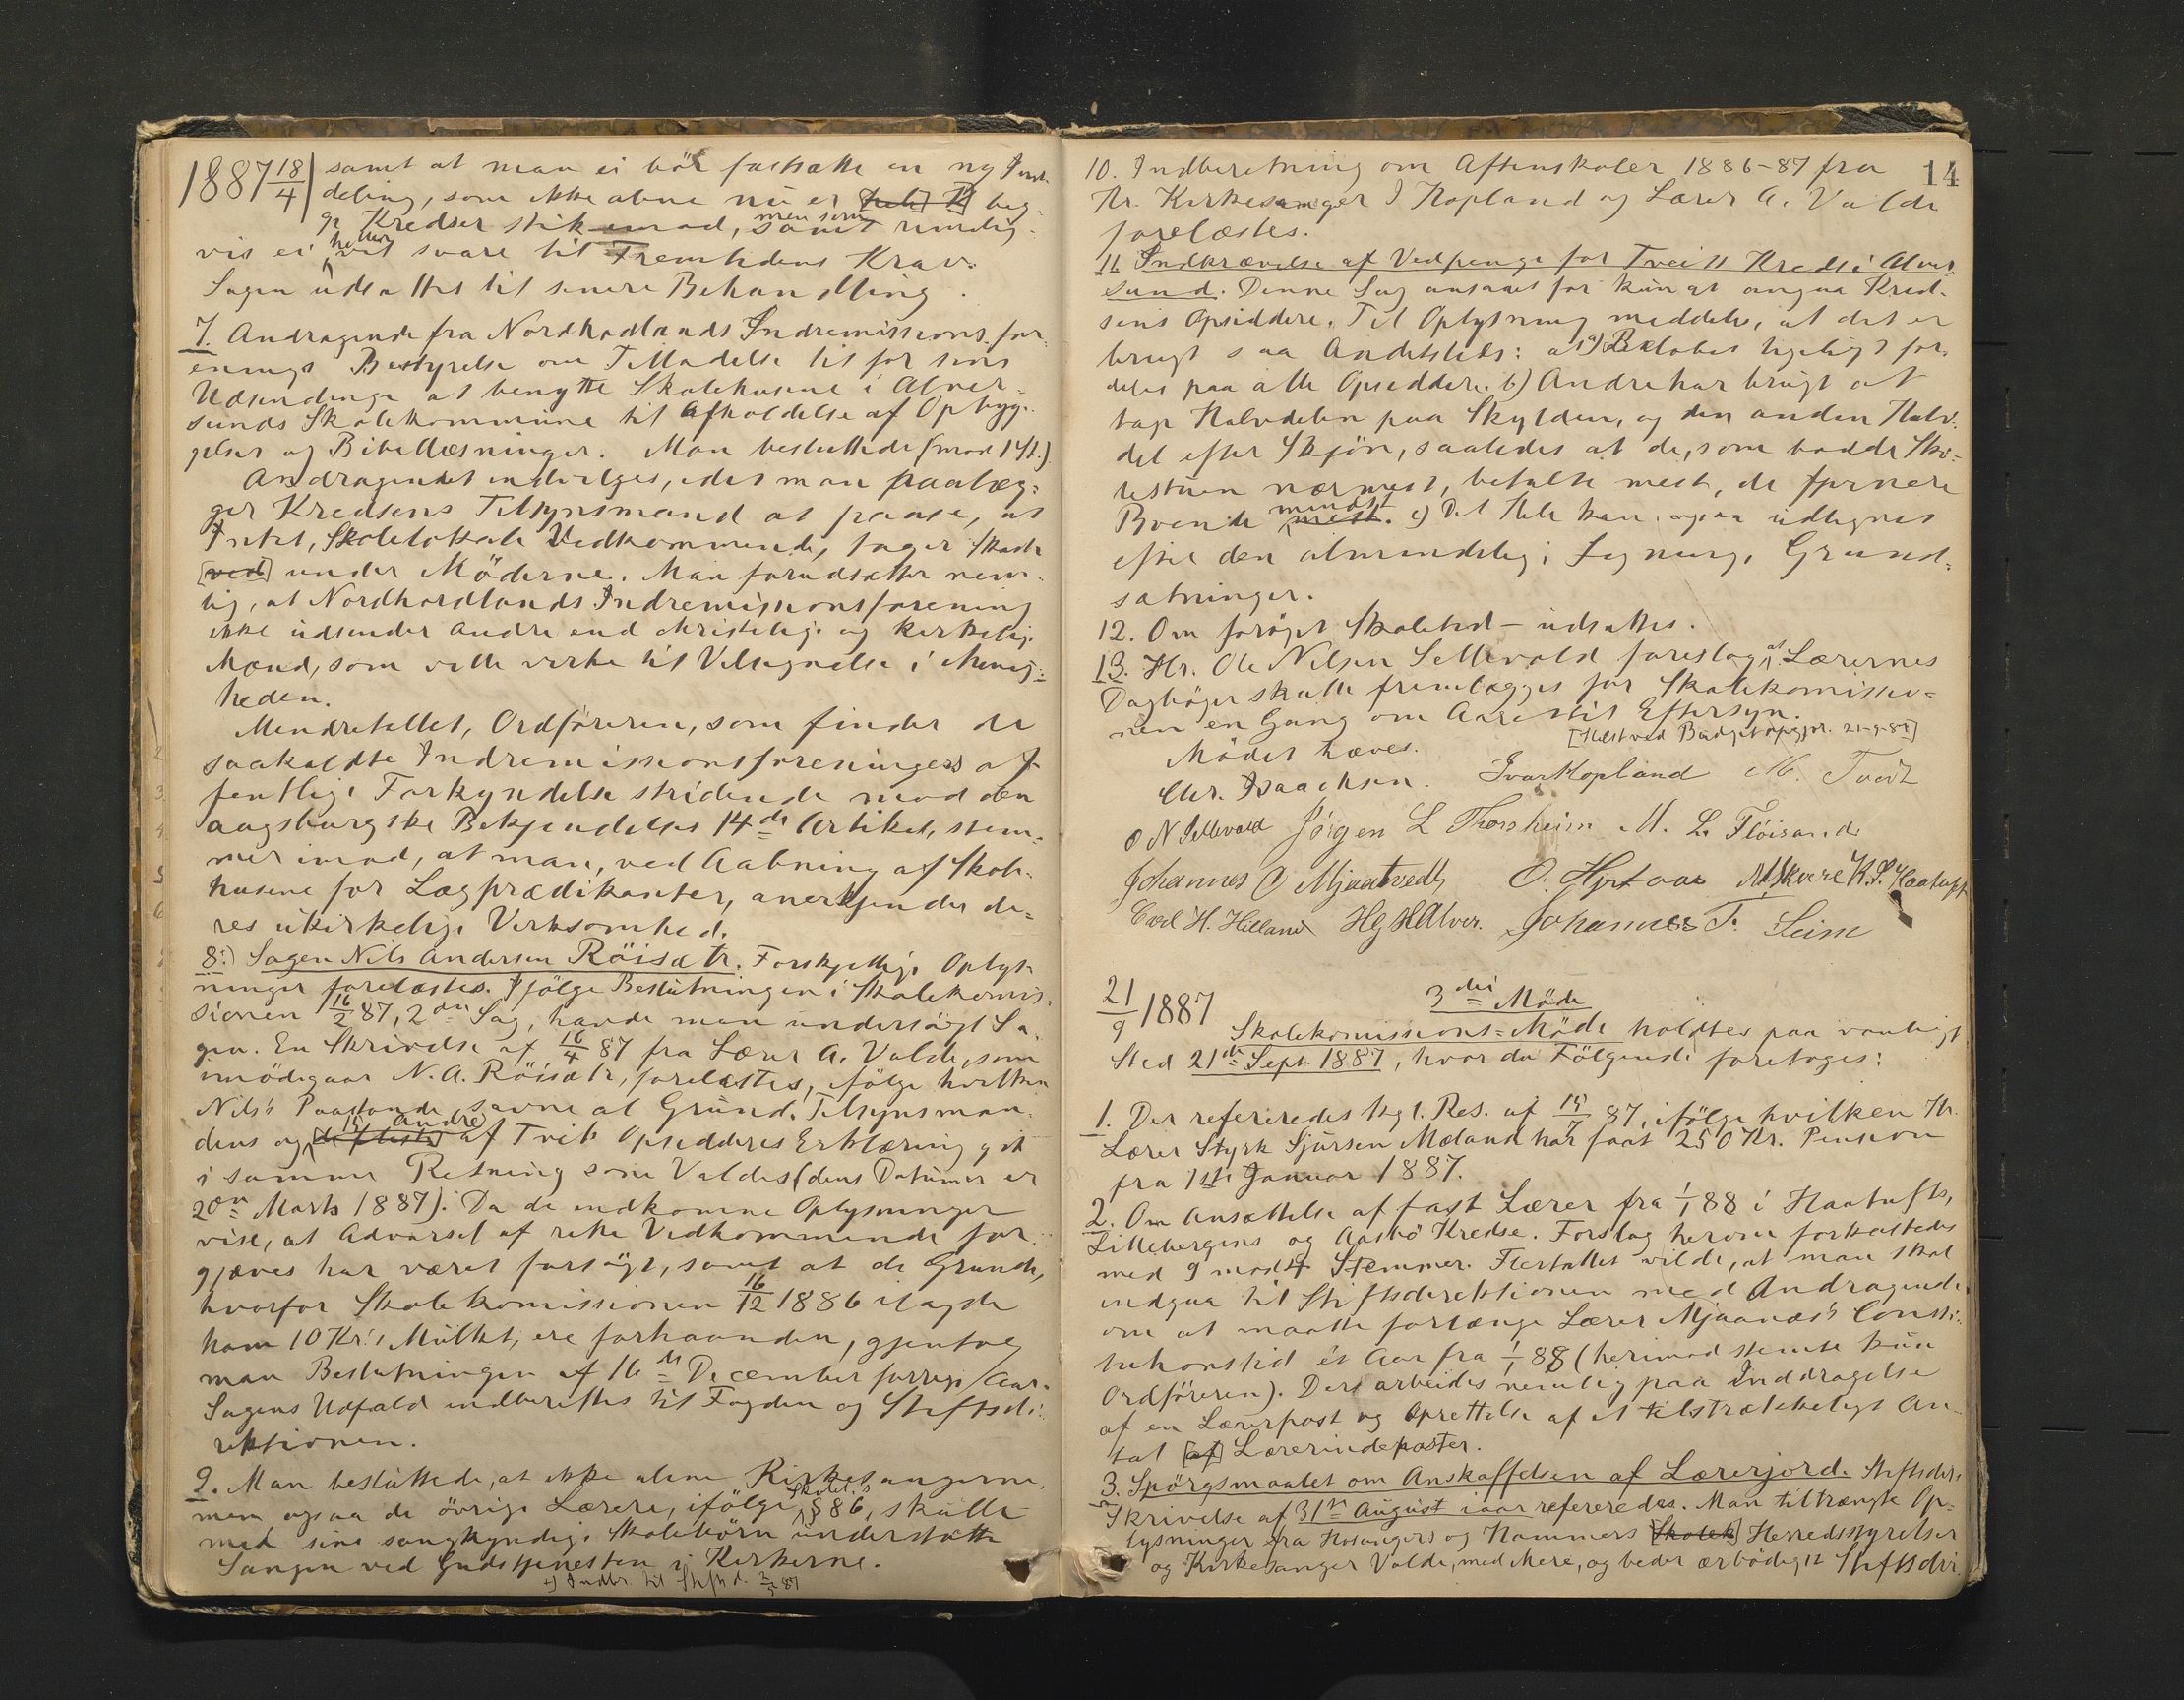 1887 18/4 samt at man ei bör fastsætte en ny Ind-
deling, som ikke alene nu er beg-
ge Kredser stik imod, men som rimelig-
vis ei heller vil svare til Fremtidens Krav.
Sagen udsattes til senere Behandling.
7. Andragende fra Nordhordlands Indremissionsfor-
enings Bestyrelse om Tilladelse til for sine
Udsendinge at benytte Skolehusene i Alver-
sunds Skolekommune til Afholdelse af Opbyg-
gelser og Bibellæsninger. Man besluttede (mod 1 St.)
Andragendet indvilges, idet man paalæg-
ger Kredsens Tilsynsmand at paase, at
Intet, Skolelokale Vedkommende, tager Skade
[ved] under Möderne. Man forudsætter nem-
lig, at Nordhordlands Indremissionsforening
ikke udsender andre end christelige og kirkelige
Mænd, som ville virke til Velsignelse i Menig-
heden.
Mindretallet, Ordföreren, som finder de
saakaldte Indremissionsforeningers of-
fentlige Forkyndelse stridende mod den
augsburgske Bekjendelses 14de Artikel, stem-
mer imod, at man, ved Aabning af Skole-
husene for Lægprædikanter, anerkjender de-
res ukirkelige Virksomhed.
8.) Sagen Nils Andersen Röisætr. Forskjellige Oplys-
ninger forelæstes. Ifölge Beslutningen i Skolekomis-
sionen 16/2 87, 2den Sag, havde man undersögt Sa-
gen. En Skrivelse af 16/4 87 fra Lærer A. Valde, som
imödegaar N. A. Röisætr, forelæstes, ifölge hvilken
Nils's Paastande savne al Grund. Tilsynsman-
dens og 19 andre af Tveit Opsidderes Erklæring gik
i samme Retning som Valdes (dens Datum er
20de Marts 1887). Da de indkomne Oplysninger
vise, at Advarsel af rette Vedkommende for-
gjæves har været forsögt, samt at de Grunde,
hvorfor Skolekomissionen 16/12 1886 ilagde
ham 10 Kr.'s Mulkt, ere forhaanden, gjentog
man Beslutningen af 16de December forrige Aar.
Sagens Udfald indberettes til Fogden og Stiftsdi-
rektionen.
9. Man besluttede, at ikke alene Kirkesangerne,
men ogsaa de övrige Lærere, ifölge Skolel.'s § 86, skulle
med sine sangkyndige Skolebörn understötte
Sangen ved Gudstjenesten i Kirkerne.
+) Indb. til Stiftsd. 2/5 87
14
10. Indberetning om Aftenskoler 1886-87 fra
Hr. Kirkesanger I Hopland og Lærer A. Valde
forelæstes.
11. Indkrævelse af Vedpenge for Tveits Kreds i Alver-
sund. Denne Sag ansaaes for kun at angaa Kred-
sens Opsiddere. Til Oplysning meddeles, at det er
brugt saa Andetsteds: at a) Belöbet ligeligt for-
deles paa alle Opsiddere. b) Andre har brugt at
tage Halvdelen paa Skylden, og den anden Halv-
del efter Skjön, saaledes at de, som bodde Sko-
lestuen nærmest, betalte mest, de fjernere
Boende mindst. c) Det Hele kan ogsaa udlignes
efter den almindelige Lignings Grund-
sætninger.
12. Om foröget Skoletid - udsattes.
13. Hr. Ole Nilsen Sellevold foreslog, at Lærernes
Dagböger skulle fremlægges for Skolekomissio-
nen en Gang om Aaret til Eftersyn.
[Helst ved Budgetopgjør. 21-9-87]
Mödet hæves.
Chr. Isaachsen. Ivar Hopland M. Tveit
O N Sellevold Jörgen L Thorsheim M. L. Flöisand
Johannes O Mjaatvedt O. Hjertaas N Skvere K. S. Haatuft
Carl H. Helland Hg H Alver. Johannes T. Seim
21/9 1887 3die Möde
Skolekomissions-Möde holdtes paa vanligt
Sted 21de Sept. 1887, hvor da Fölgende foretoges:
1. Der refereredes kgl. Res. af 15/7 87, ifölge hvilken Hr.
Lærer Styrk Sjursen Mæland har faat 250 Kr. Pension
fra 1ste Januar 1887.
2. Om Ansættelse af fast Lærer fra 1/1 88 i Haatufts,
Lillebergens og Aasbö Kredse. Forslag herom forkastedes
med 9 mod 4 Stemmer. Flertallet vilde, at man skal
indgaa til Stiftsdirektionen med Andragende
om at maatte forlænge Lærer Mjaanæs's Consti-
tutionstid et Aar fra 1/1 88 (herimod stemte kun
Ordföreren). Der arbeides nemlig paa Inddragelse
af en Lærerpost og Oprettelse af et tilstrækkeligt An-
tal [af] Lærerindeposter.
3. Spörgsmaalet om Anskaffelsen af Lærerjord. Stiftsdir.
Skrivelse af 31te August iaar refereredes. Man tiltrængte Op-
lysninger fra Hosangers og Hammers [Skolek] Herredsstyrelser
og Kirkesanger Valde, med Mere, og beder ærbödigst Stiftsdi-